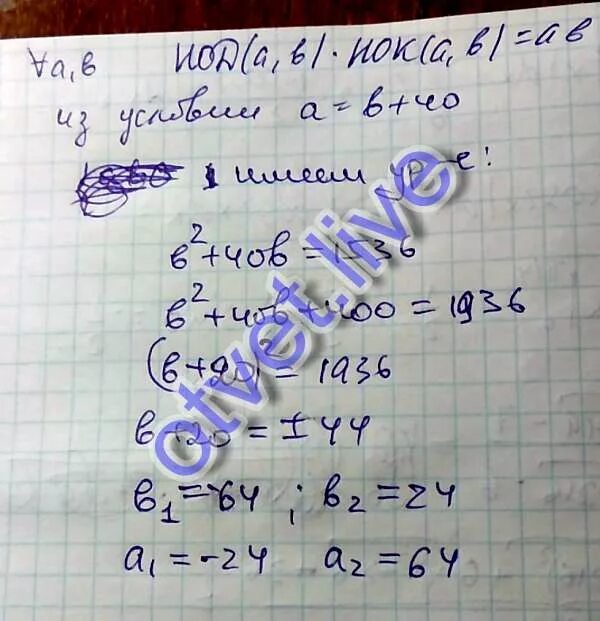 ∀a,b НОД(a,b)·НОК(a,b)=ab
из условии a=b+40
имеем ур-е:
b²+40b=1536
b²+40b+400=1936
(b+20)²=1936
b+20=±44
b₁=-64; b₂=24
a₁=-24 a₂=64
otvet.live